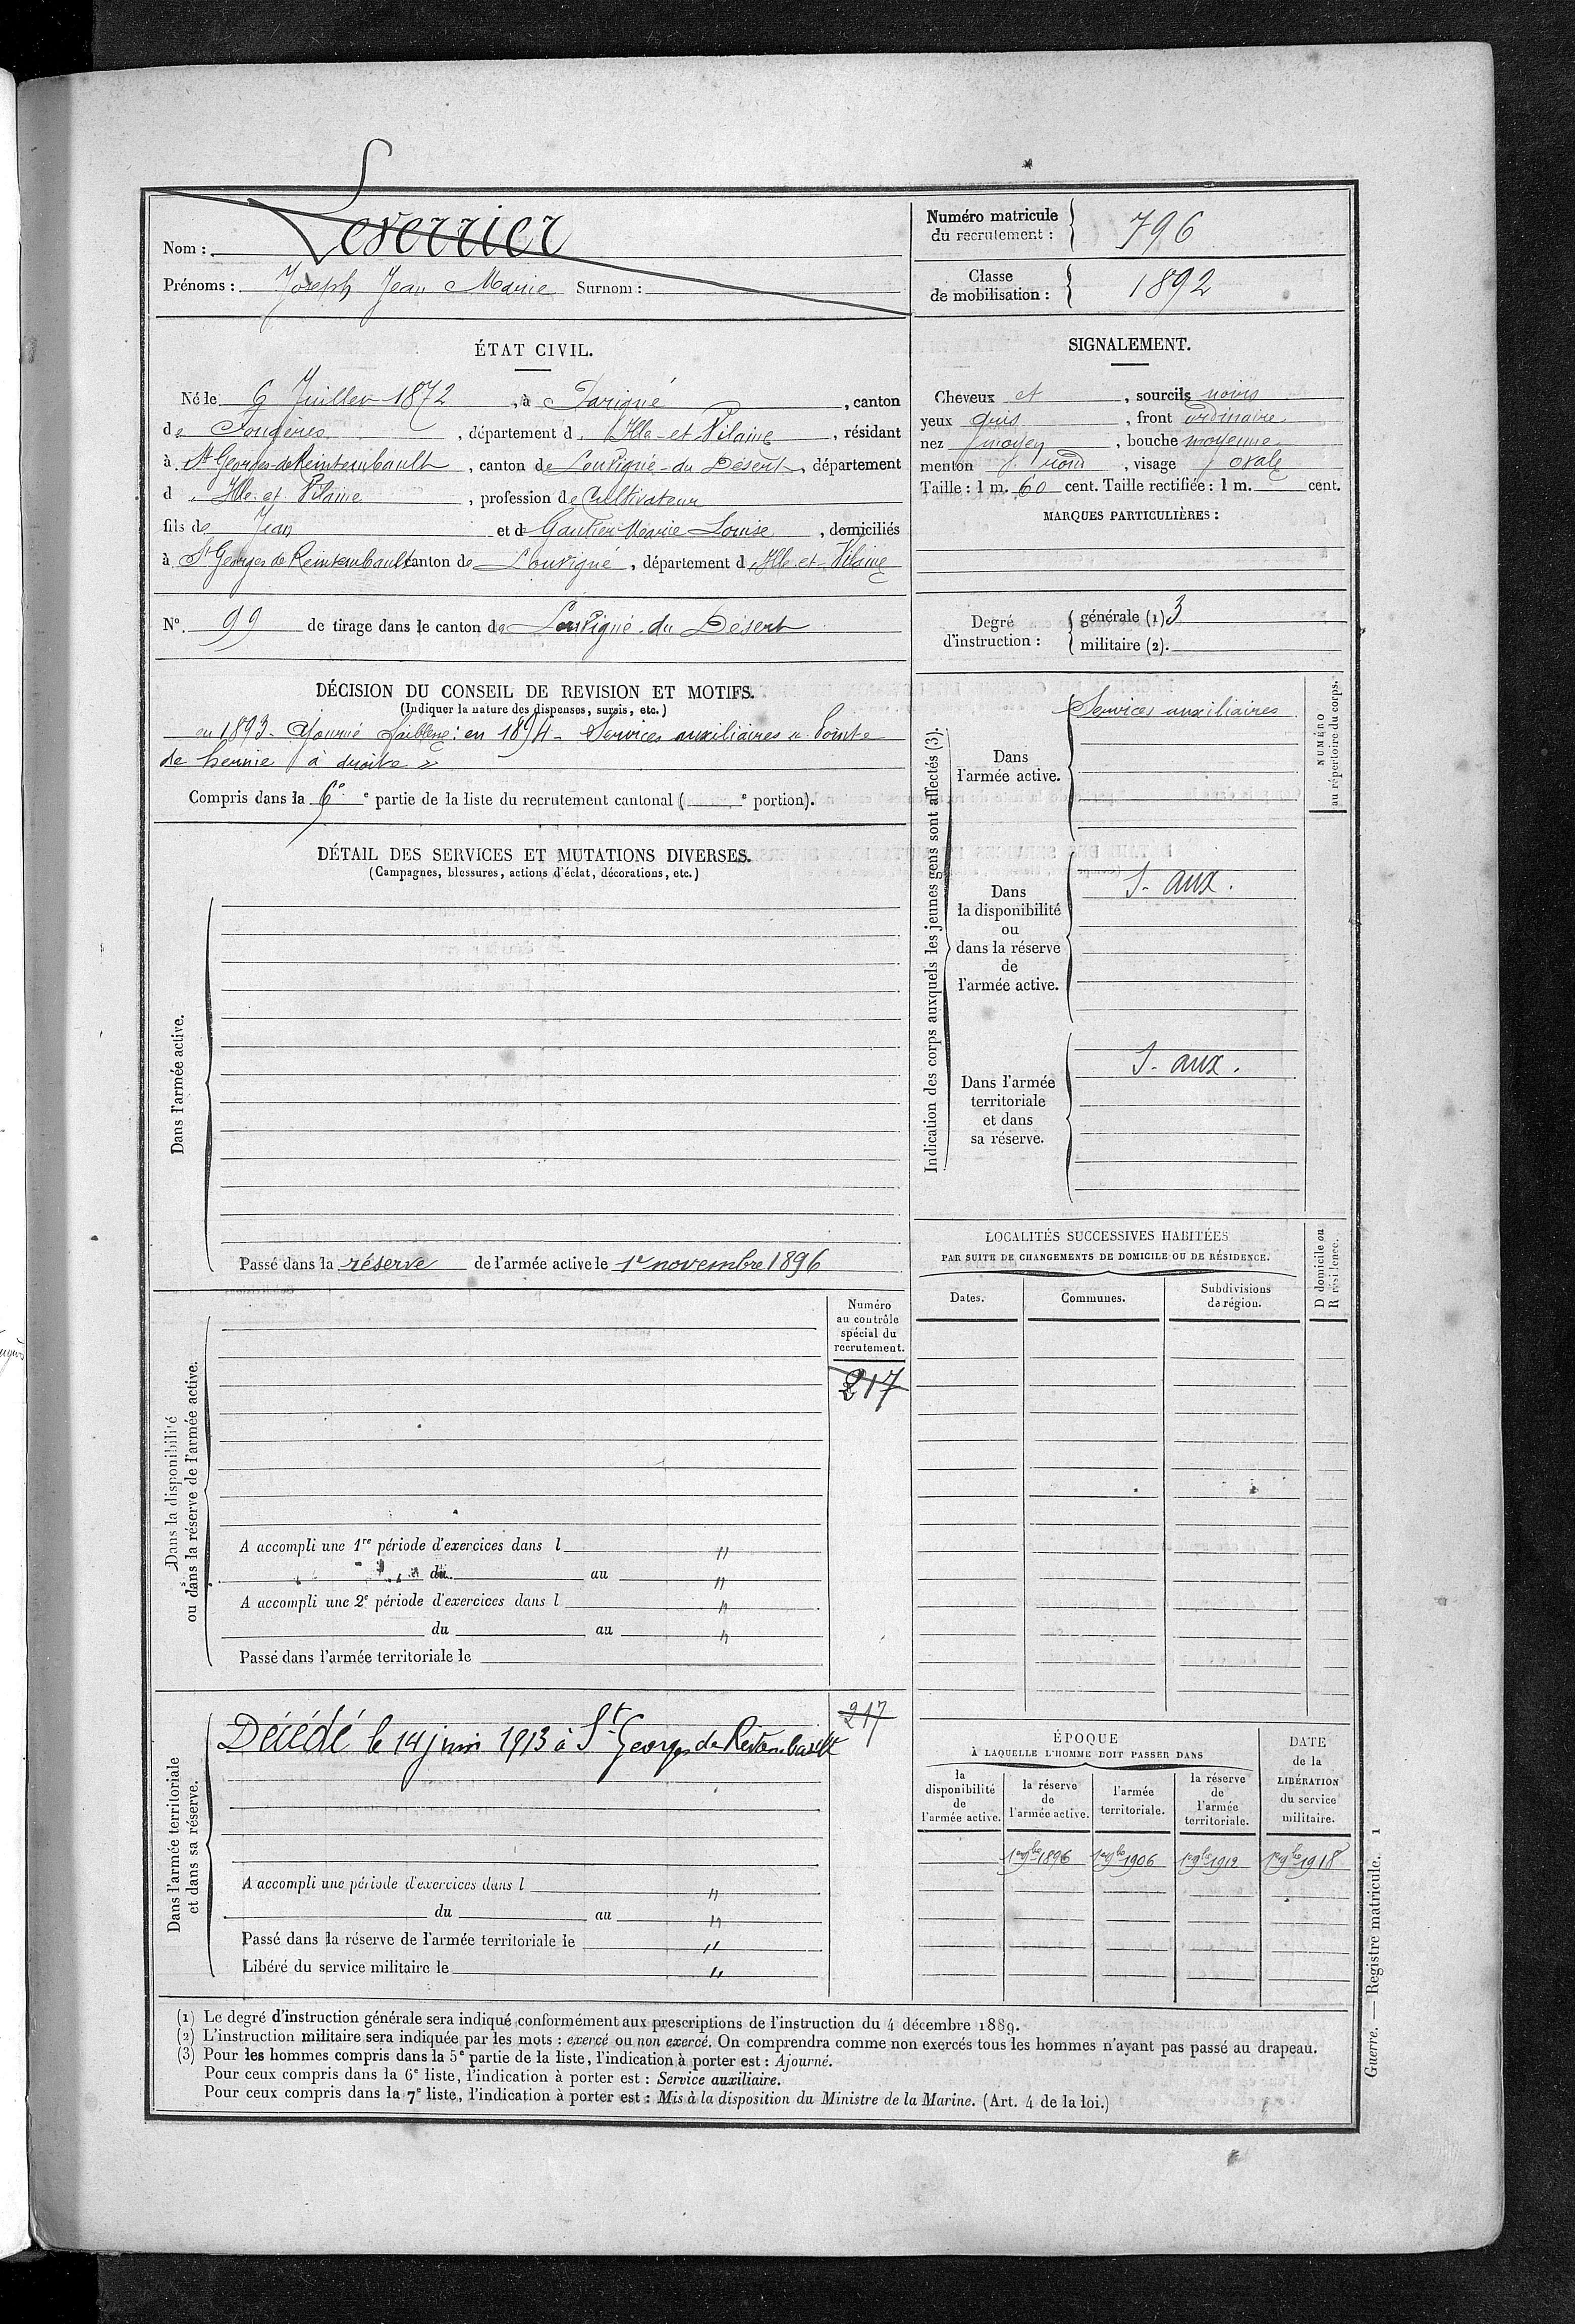 Nom : Leverrier
Prénoms : Joseph Jean Marie Surnom :
Numéro matricule du recrutement : 796
Classe de mobilisation : 1892
ÉTAT CIVIL.
Né le 6 Juillet 1872, à Parigné, canton
de Fougères, département d Ille-et-Vilaine, résidant
à St Georges-de-Reintembault, canton de Louvigné-du-Désert, département
d Ille-et-Vilaine, profession de Cultivateur
fils de Jean et de Gautier Marie Louise, domiciliés
à St Georges de Reintembault canton de Louvigné, département d Ille-et-Vilaine
N° 99 de tirage dans le canton de Louvigné-du-Désert
SIGNALEMENT.
Cheveux et, sourcils noirs
yeux gris, front ordinaire
nez moyen, bouche moyenne
menton rond, visage ovale
Taille : 1 m. 60 cent. Taille rectifiée : 1 m. cent.
MARQUES PARTICULIÈRES :
Degré d'instruction : générale (1) 3
militaire (2).
DÉCISION DU CONSEIL DE REVISION ET MOTIFS.
(Indiquer la nature des dispenses, sursis, etc.)
en 1893 - Ajourné faiblesse : en 1894 - Services auxiliaires « Pointe
de hernie à droite »
Compris dans la 6e e partie de la liste du recrutement cantonal ( e portion).
DÉTAIL DES SERVICES ET MUTATIONS DIVERSES.
(Campagnes, blessures, actions d'éclat, décorations, etc.)
Dans l'armée active.
Passé dans la réserve de l'armée active le 1er novembre 1896
Indication des corps auxquels les jeunes gens sont affectés (3).
NUMÉRO
au répertoire du corps.
Dans
l'armée active.
Services auxiliaires
Dans
la disponibilité
ou
dans la réserve
de
l'armée active.
S. aux.
Dans l'armée
territoriale
et dans
sa réserve.
S. aux.
LOCALITÉS SUCCESSIVES HABITÉES
PAR SUITE DE CHANGEMENTS DE DOMICILE OU DE RÉSIDENCE.
Dates.
Communes.
Subdivisions
de région.
D domicile ou
R résidence.
Dans la disponibilité
ou dans la réserve de l'armée active.
Numéro
au contrôle
spécial du
recrutement.
217
A accompli une 1re période d'exercices dans l "
du au "
A accompli une 2e période d'exercices dans l "
du au "
Passé dans l'armée territoriale le
Dans l'armée territoriale
et dans sa réserve.
217
Décédé le 14 juin 1913 à St Georges de Reitembault
A accompli une période d'exercices dans l "
du au "
Passé dans la réserve de l'armée territoriale le "
Libéré du service militaire le "
ÉPOQUE
À LAQUELLE L'HOMME DOIT PASSER DANS
la
disponibilité
de
l'armée active.
la réserve
de
l'armée active.
l'armée
territoriale.
la réserve
de
l'armée
territoriale.
DATE
de la
LIBÉRATION
du service
militaire.
1er 9bre 1896 1er 9bre 1906 1er 9bre 1912 1er 9bre 1918
(1) Le degré d'instruction générale sera indiqué conformément aux prescriptions de l'instruction du 4 décembre 1889.
(2) L'instruction militaire sera indiquée par les mots : exercé ou non exercé. On comprendra comme non exercés tous les hommes n'ayant pas passé au drapeau.
(3) Pour les hommes compris dans la 5e partie de la liste, l'indication à porter est : Ajourné.
Pour ceux compris dans la 6e liste, l'indication à porter est : Service auxiliaire.
Pour ceux compris dans la 7e liste, l'indication à porter est : Mis à la disposition du Ministre de la Marine. (Art. 4 de la loi.)
Guerre. — Registre matricule. 1